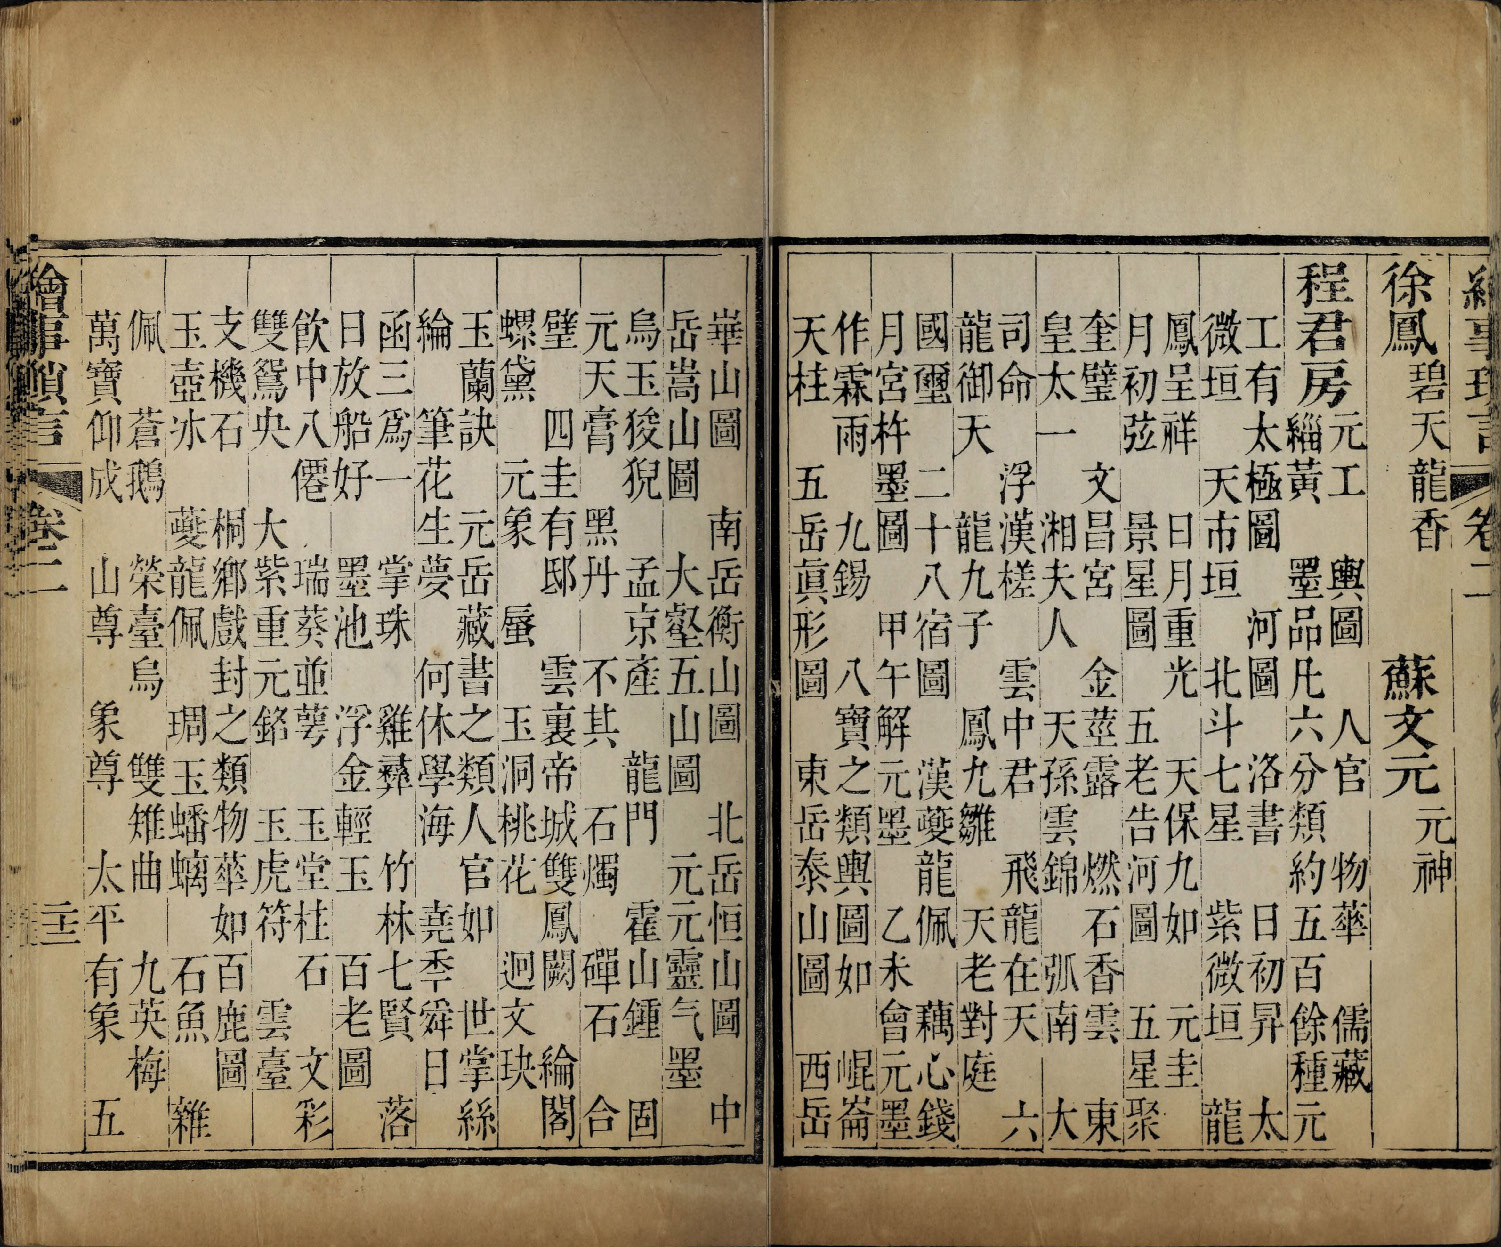 繪事瑣言 卷二
徐鳳 碧天龍香 蘇文元 元神
程君房 元工 輿圖 人官 物華 儒藏
緇黃 墨品凡六分類約五百餘種元
工有太極圖 河圖 洛書 日初昇 太
微垣 天市垣 北斗七星 紫微垣 龍
鳳呈祥 日月重光 天保九如 元圭
月初弦 景星圖 五老告河圖 五星聚
奎璧 文昌宮 金莖露 燃石香雲 東
皇太一 湘夫人 天孫雲錦 弧南 大
司命 浮漢槎 雲中君 飛龍在天 六
龍御天 龍九子 鳳九雛 天老對庭
國璽 二十八宿圖 漢夔龍佩 藕心錢
月宮杵墨圖 甲午解元墨 乙未會元墨
作霖雨 九錫 八寶之類輿圖如 崐崙
天柱 五岳眞形圖 東岳泰山圖 西岳
崋山圖 南岳衡山圖 北岳恒山圖 中
岳嵩山圖 大壑五山圖 元元靈气墨
烏玉狻猊 孟京產 龍門 霍山鍾 固
元天膏 黑丹 不其 石燭 磾石 合
璧 四圭有邸 雲裏帝城雙鳳闕 綸閣
螺黛 元象 蜃 玉洞桃花 迴文玦
玉蘭訣 元岳藏書之類人官如 世掌絲
綸 筆花生夢 何休學海 堯秊舜日
函三爲一 掌珠 雞彝 竹林七賢 落
日放船好 墨池 浮金輕玉 百老圖
飲中八僊 瑞葵並萼 玉堂柱石 文彩
雙鴛央 大紫重元銘 玉虎符 雲臺
支機石 桐鄉戲封之類物華如百鹿圖
玉壺冰 夔龍佩 琱玉蟠螭 石魚 雜
佩 蒼鵝 榮臺烏 雙雉曲 九英梅
萬寶仰成 山尊 象尊 太平有象 五
繪事瑣言 卷二 二十三